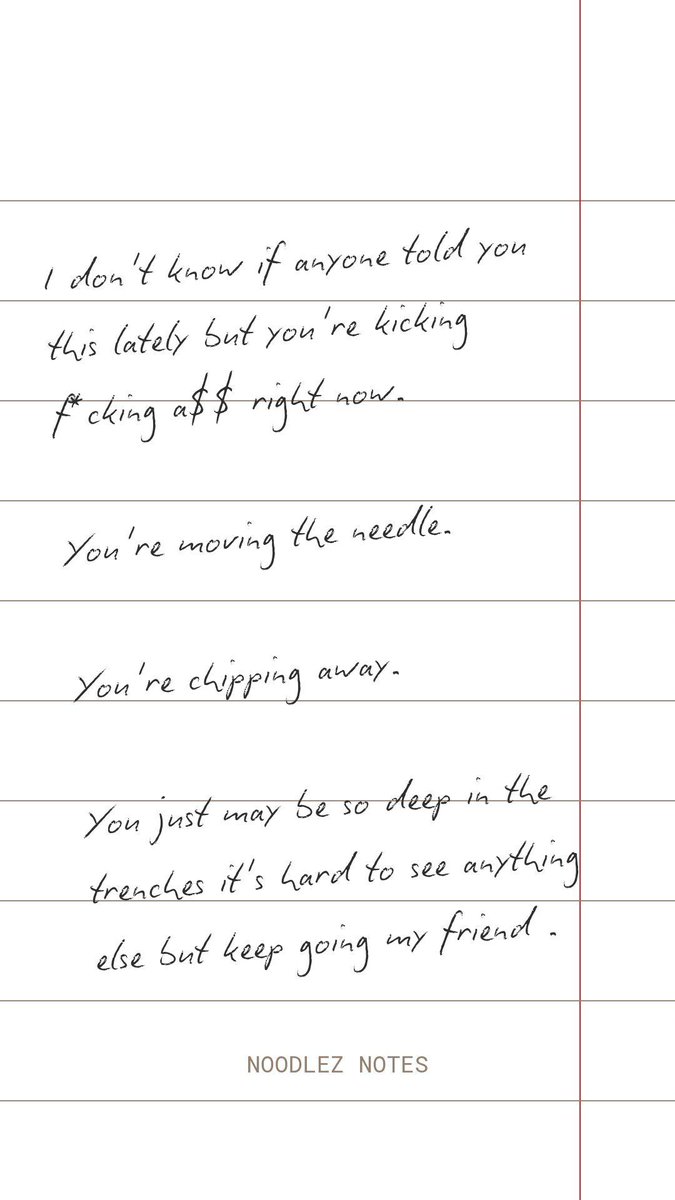 I don't know if anyone told you
this lately but you're kicking
f*cking a$$ right now.
You're moving the needle.
You're chipping away.
You just may be so deep in the
trenches it's hard to see anything
else but keep going my friend.
NOODLEZ NOTES